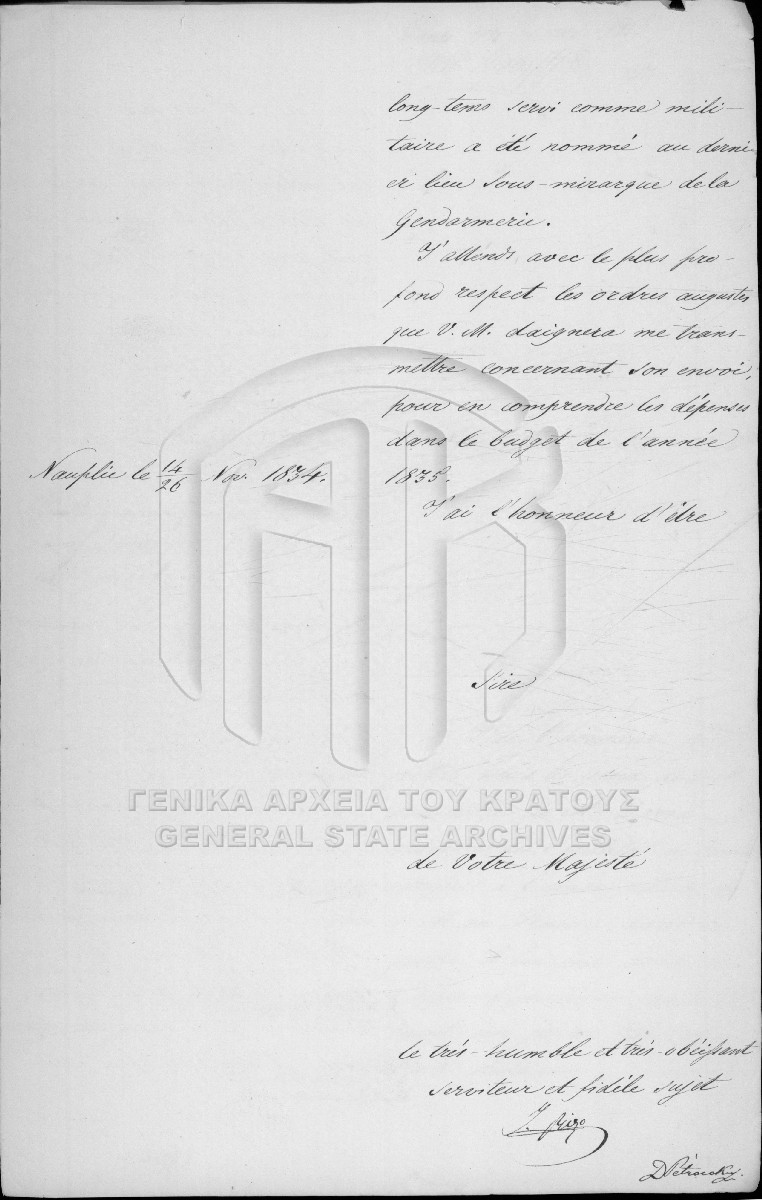 long-tems servi comme mili-
taire a été nommé au derni-
er lieu sous-mirarque de la
Gendarmerie.
J'attends avec le plus pro-
fond respect les ordres augustes
que V. M. daignera me trans-
mettre concernant son envoi,
pour en comprendre les dépenses
dans le budget de l'année
1835.
Nauplie le 14/26 Nov. 1834.
J'ai l'honneur d'être
Sire
ΓΕΝΙΚΑ ΑΡΧΕΙΑ ΤΟΥ ΚΡΑΤΟΥΣ
GENERAL STATE ARCHIVES
de Votre Majesté
le très-humble et très-obéissant
serviteur et fidèle sujet
J. Rizo